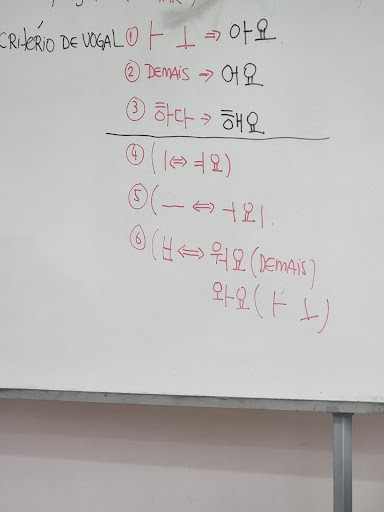 CRITÉRIO DE VOGAL ① ㅏ ㅗ ⇒ 아요
② DEMAIS → 어요
③ 하다 → 해요
④ (ㅣ⇔ ㅕ요)
⑤ (ㅡ ⇔ ㅓ요)
⑥ (ㅂ ⇔ 워요 (DEMAIS)
와요 (ㅏ ㅗ)